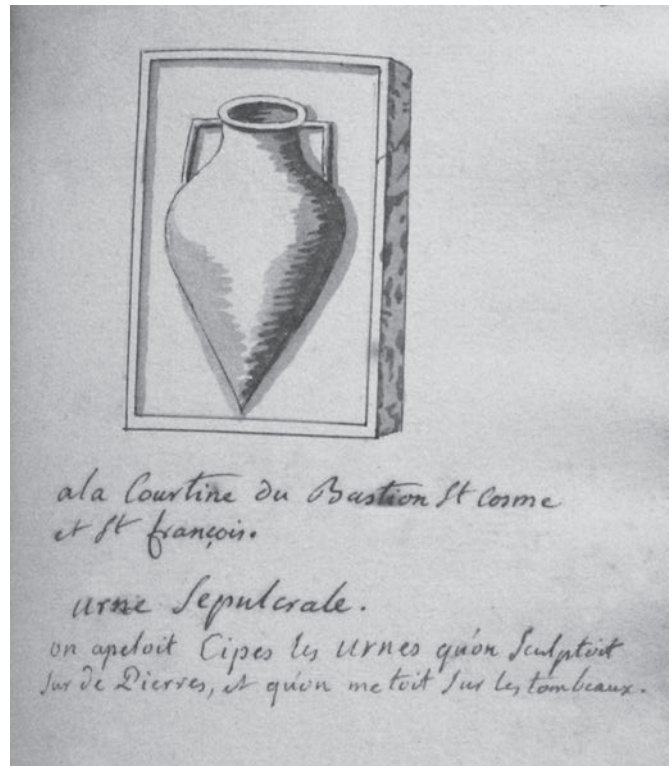 ala Courtine du Bastion St Cosme
et St françois.
urne Sepulcrale.
on apeloit Cipes les urnes qu'on Sculptoit
sur de Pierres, et qu'on metoit sur les tombeaux.